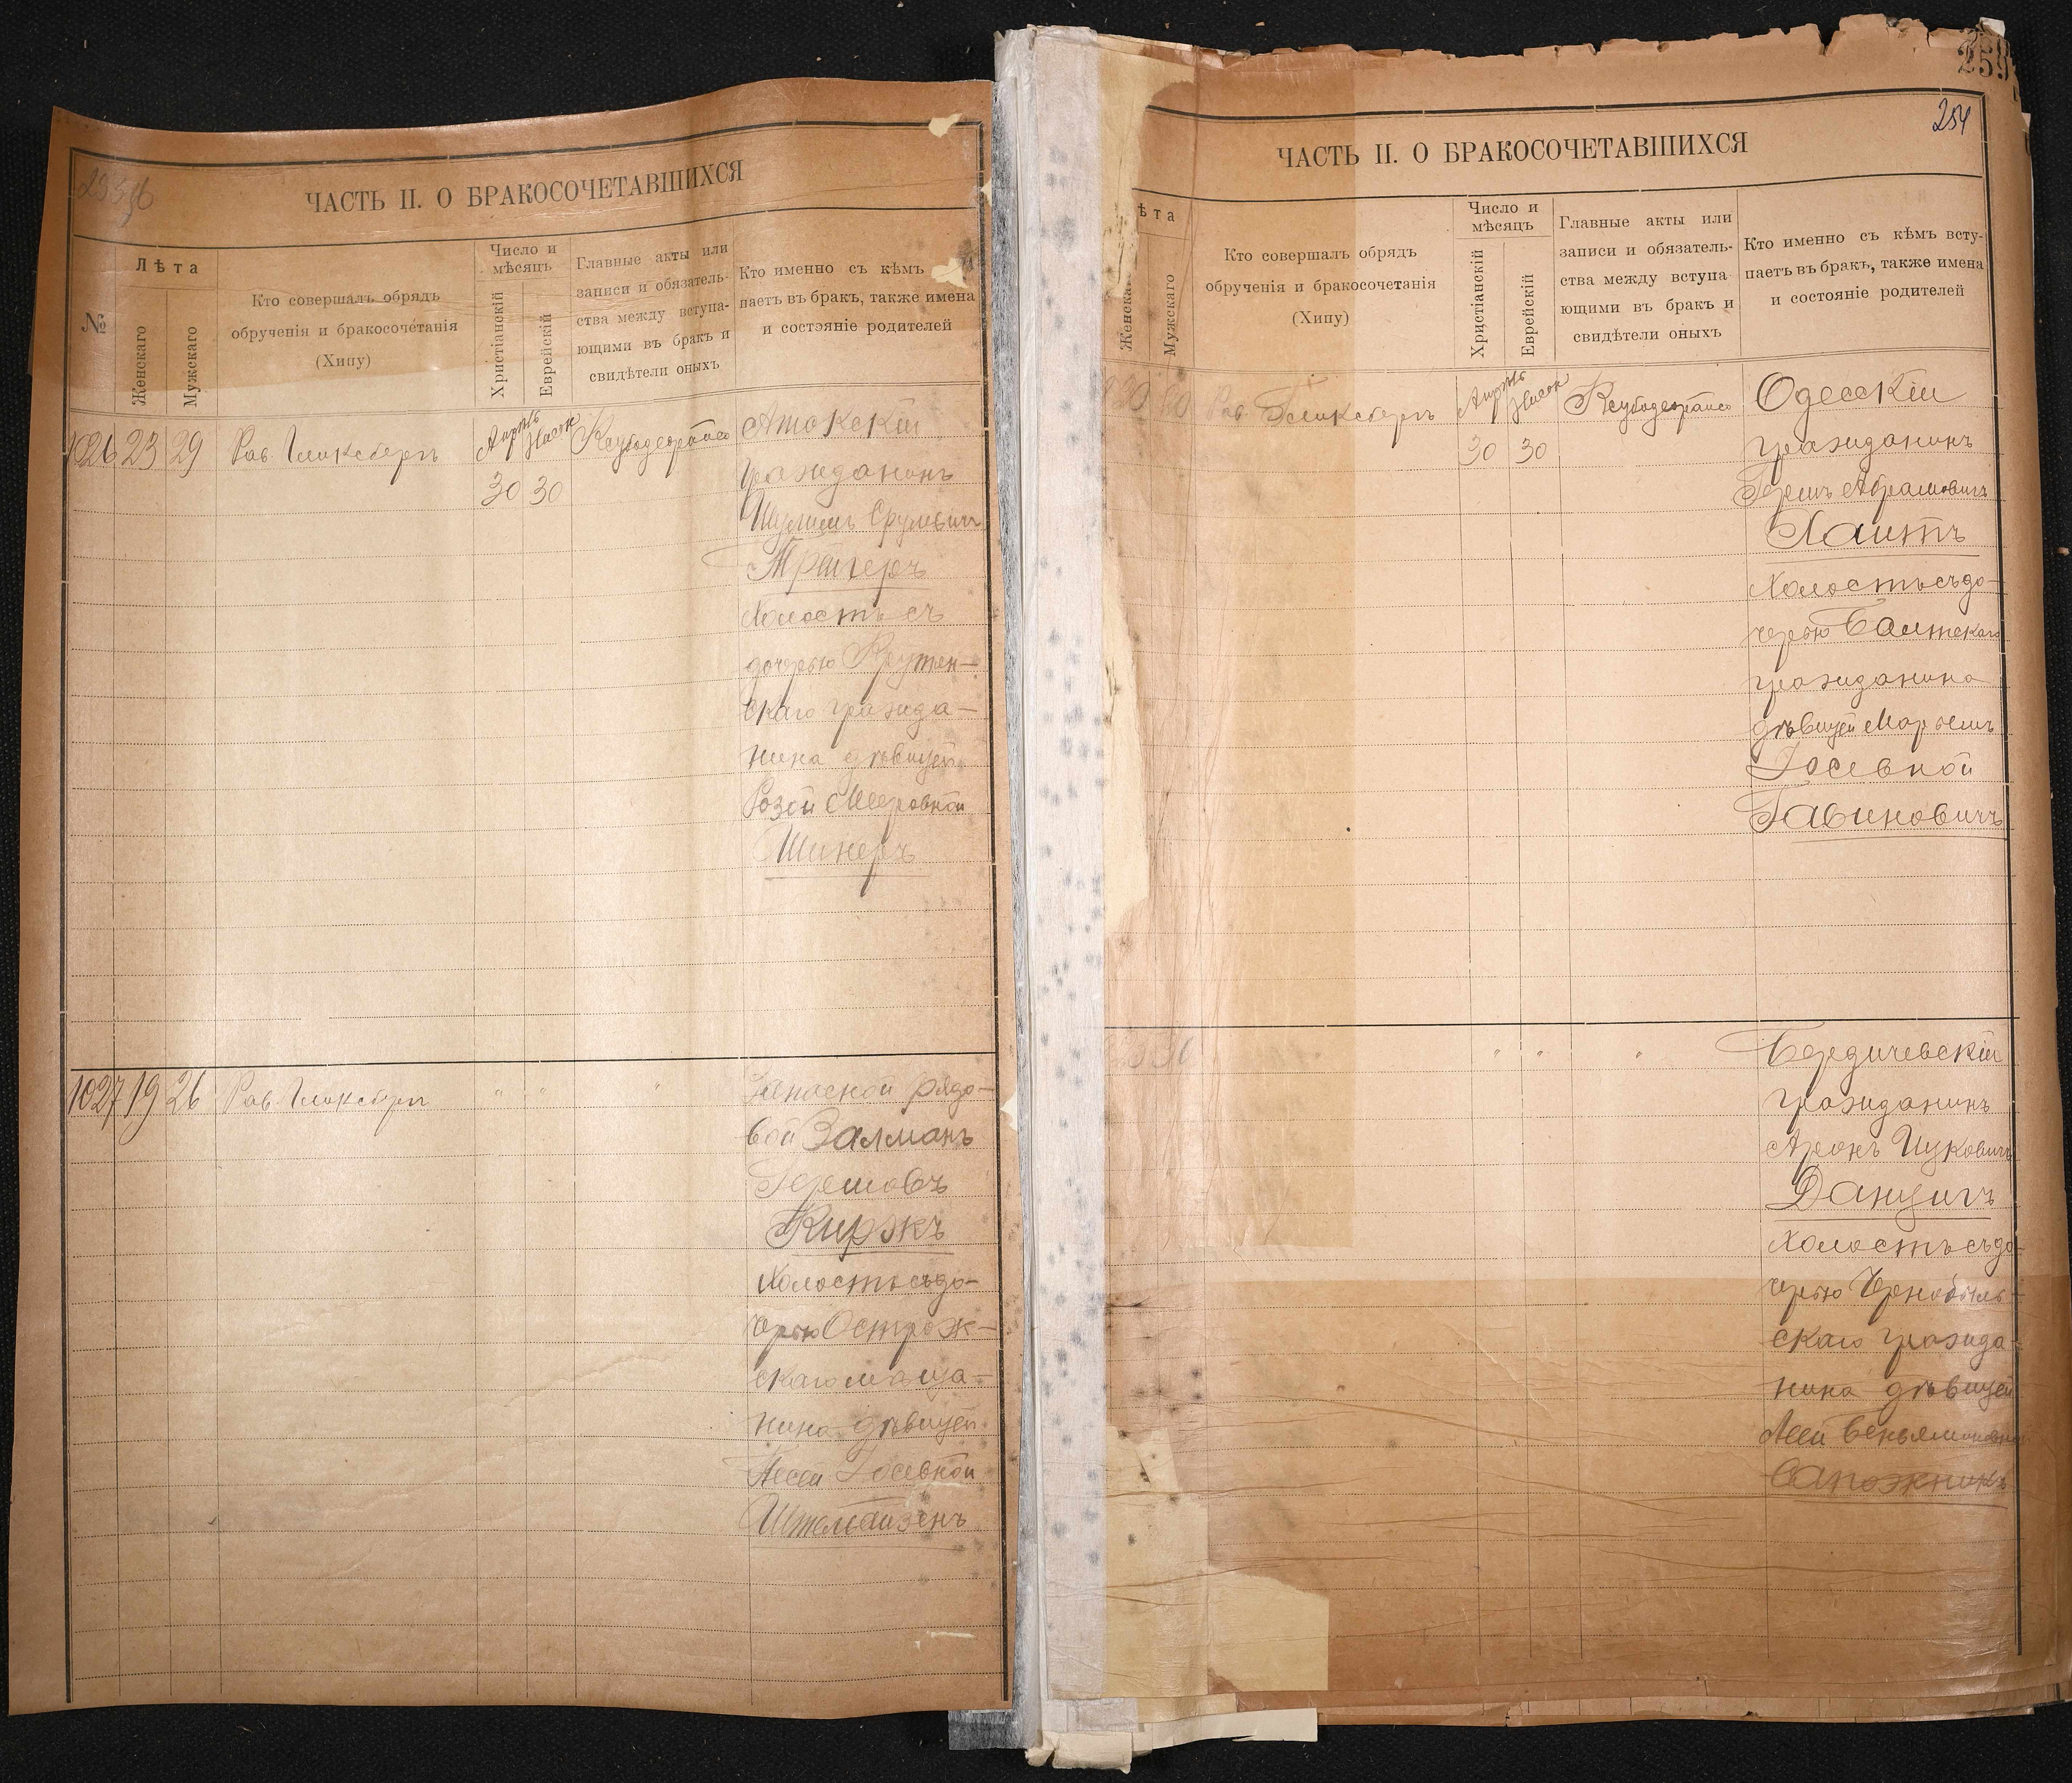 ЧАСТЬ II. О БРАКОСОЧЕТАВШИХСЯ
№
Лѣта
Женскаго
Мужскаго
Кто совершалъ обрядъ
обрученія и бракосочетанія
(Хипу)
Число и
мѣсяцъ
Христіанскій
Еврейскій
Главные акты или
записи и обязатель-
ства между вступа-
ющими въ бракъ и
свидѣтели оныхъ
Кто именно съ кѣмъ
паетъ въ бракъ, также имена
и состояніе родителей
1026 23 29 Рав. Гликсбергъ
Апрѣль
30 30
гражданинъ
Шулимъ Срулевичъ
Трагеръ
Холостъ съ
дочерью
скаго гражда-
нина дѣвицей
Розой Мееровной
Шинеръ
1027 19 26 Рав. Гликсбергъ " " "
Запасной рядо-
вой Залманъ
Гершовъ
Киржъ
Холостъ съ до-
черью Острож-
скаго мѣща-
нина дѣвицей
Песей Іосевной
Штальбаизенъ
259
254
ЧАСТЬ II. О БРАКОСОЧЕТАВШИХСЯ
ѣта
Женска
Мужскаго
Кто совершалъ обрядъ
обрученія и бракосочетанія
(Хипу)
Число и
мѣсяцъ
Христіанскій
Еврейскій
Главные акты или
записи и обязатель-
ства между вступа
ющими въ бракъ и
свидѣтели оныхъ
Кто именно съ кѣмъ всту-
паетъ въ бракъ, также имена
и состояніе родителей
Рав. Гликсбергъ
Апрѣль
30 30
Одесскій
гражданинъ
Гершъ Абрамовичъ
Хаитъ
Холостъ съ до-
черью Балтскаго
гражданина
дѣвицей Марьемъ
Іосевной
Рабиновичъ
" " "
Бердичевскій
гражданинъ
Аронъ Ицковичъ
Данцигъ
Холостъ съ до-
черью Чернобыль-
скаго гражда-
нина дѣвицей
Леей Беньяминовной
Сапожникъ